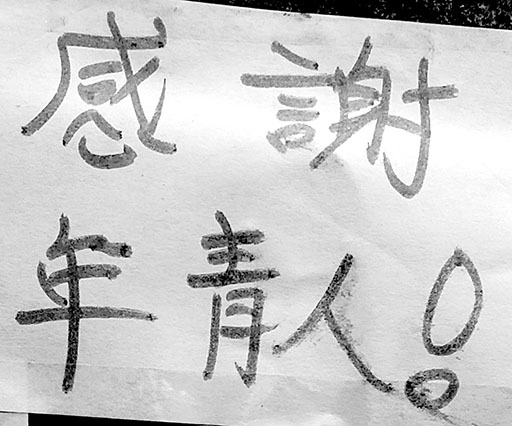 感謝
年青人!